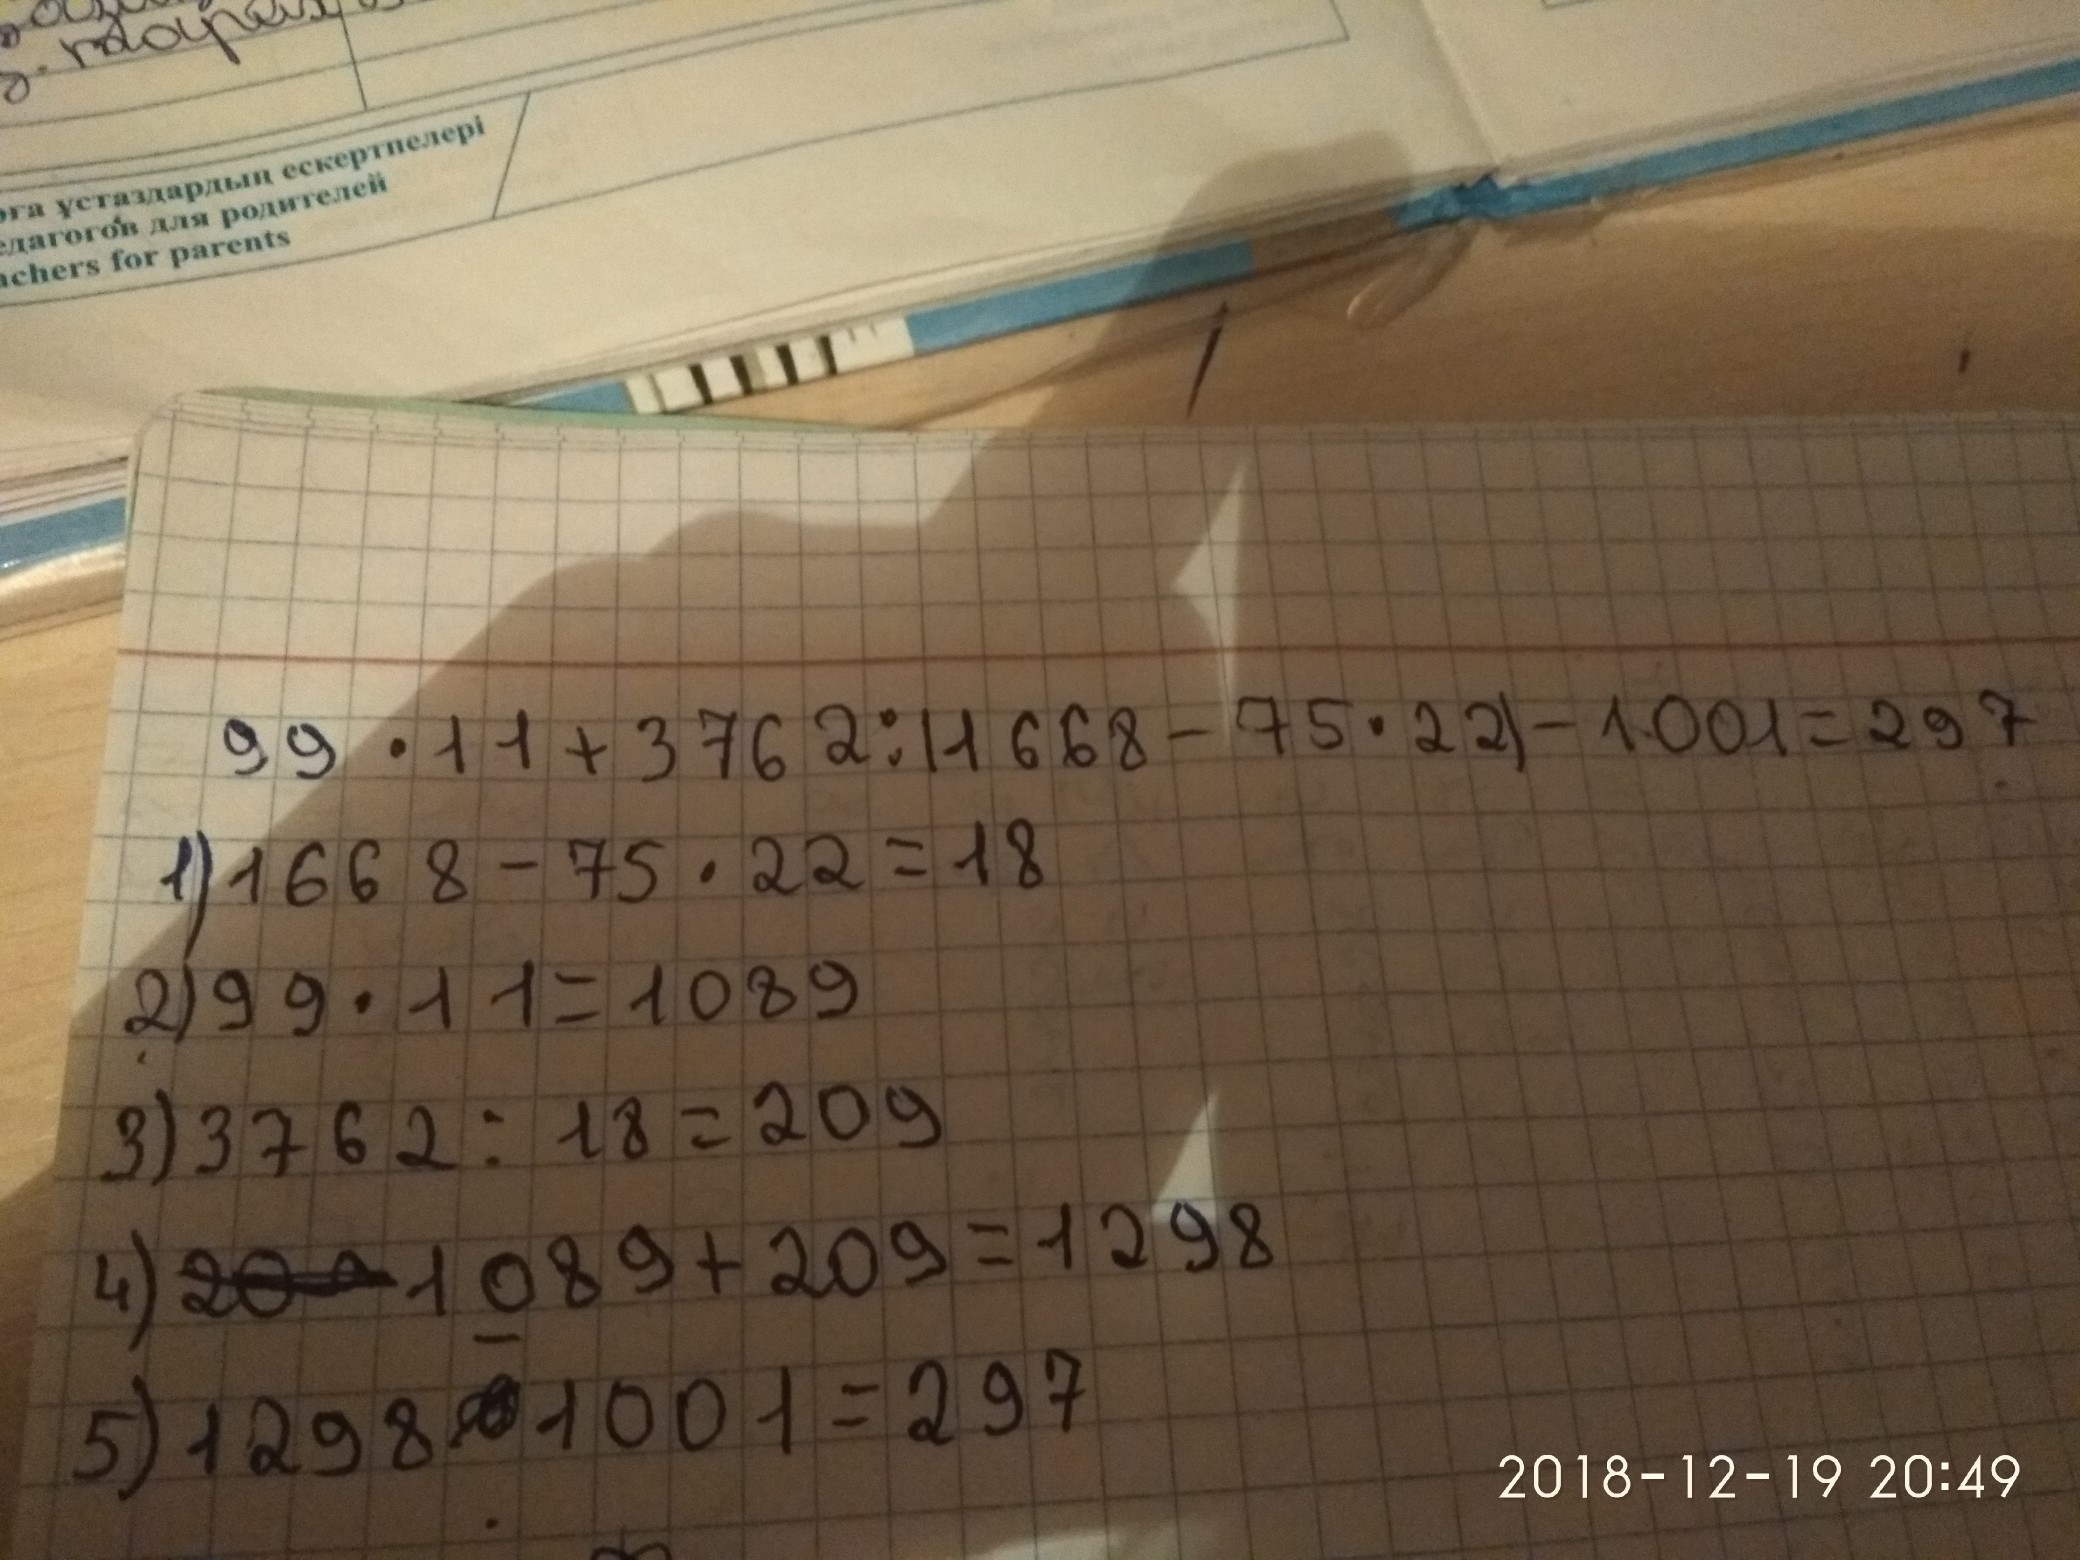 ұстаздардың ескертпелері
для родителей
for parents
99 · 11 + 3762 : (1668 - 75 · 22) - 1001 = 297
1) 1668 - 75 · 22 = 18
2) 99 · 11 = 1089
3) 3762 : 18 = 209
4) 1089 + 209 = 1298
5) 1298 - 1001 = 297
2018-12-19 20:49